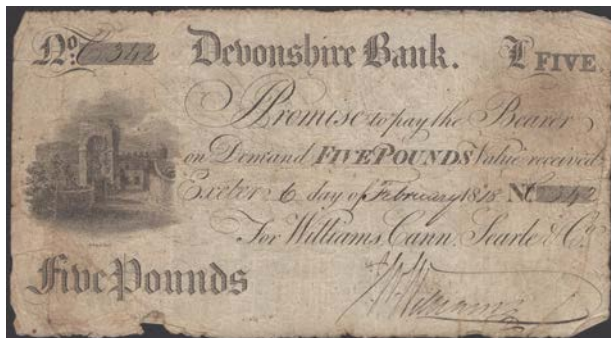 No. C342 Devonshire Bank. £ FIVE
I Promise to pay the Bearer
on Demand FIVE POUNDS Value received
Exeter 6 day of February 1818 No. C342
For Williams, Cann, Searle & Co.
Five Pounds